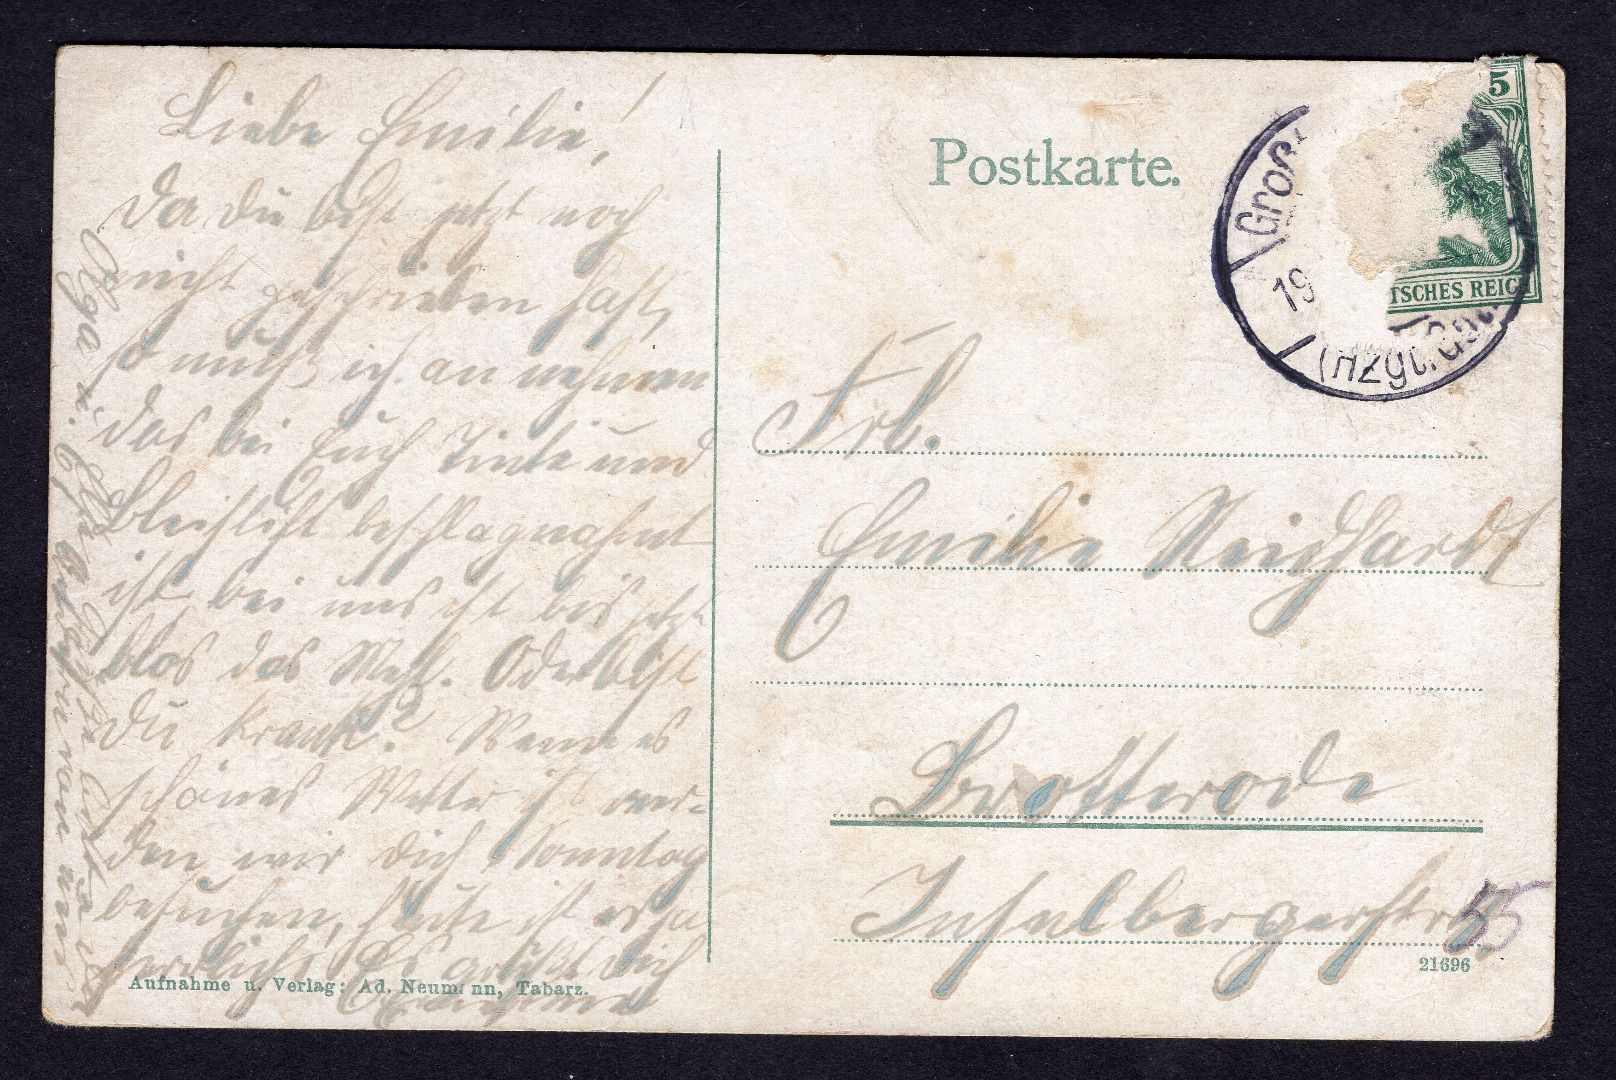 Liebe Emilie!
Da Du bist jetzt noch
nicht geschrieben hast,
so muß ich annehmen
das bei Euch Tinte und
Bleistift beschlagnahmt
ist bei uns ist bis jetzt
blos das Mehl. Oder bist
Du krank? Wenn es
schönes Wetter ist wer-
den wir Dich Sonntag
besuchen, heute ist es ja
herrlich. Es grüßt Dich
Olga u.
von uns
Aufnahme u. Verlag: Ad. Neumann, Tabarz.
Postkarte.
5
TSCHES REICH
Groß
19
(Hzgt. Go
Frl.
Emilie Neidhardt
Brotterode
Inselbergerstr.
55
21696